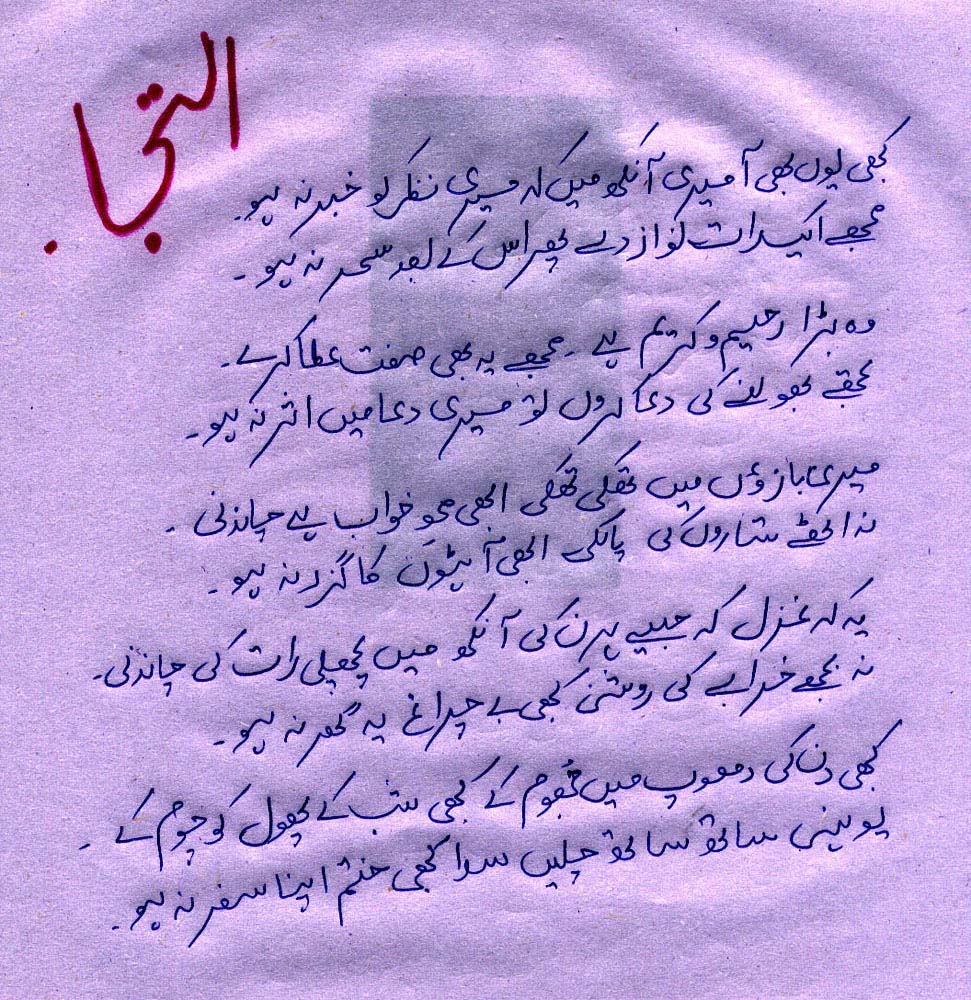 التجا.
کبھی یوں بھی آ میری آنکھ میں کہ میری نظر کو خبر نہ ہو۔
مجھے ایک رات نواز دے پھر اس کے بعد سحر نہ ہو۔
وہ بڑا رحیم و کریم ہے۔ مجھے یہ بھی صفت عطا کرے۔
تجھے بھولنے کی دعا کروں تو میری دعا میں اثر نہ ہو۔
میری بازوؤں میں تھکی تھکی ابھی محوِ خواب ہے چاندنی۔
نہ اٹھے ستاروں کی پالکی ابھی آہٹوں کا گزر نہ ہو۔
یہ کہ غزل کہ جیسے ہرن کی آنکھ میں پچھلی رات کی چاندنی۔
نہ بجھے خرابے کی روشنی کبھی بے چراغ یہ گھر نہ ہو۔
کبھی دن کی دھوپ میں جھوم کے کبھی شب کے پھول کو چوم کے۔
یونہی ساتھ ساتھ چلیں سدا کبھی ختم اپنا سفر نہ ہو۔